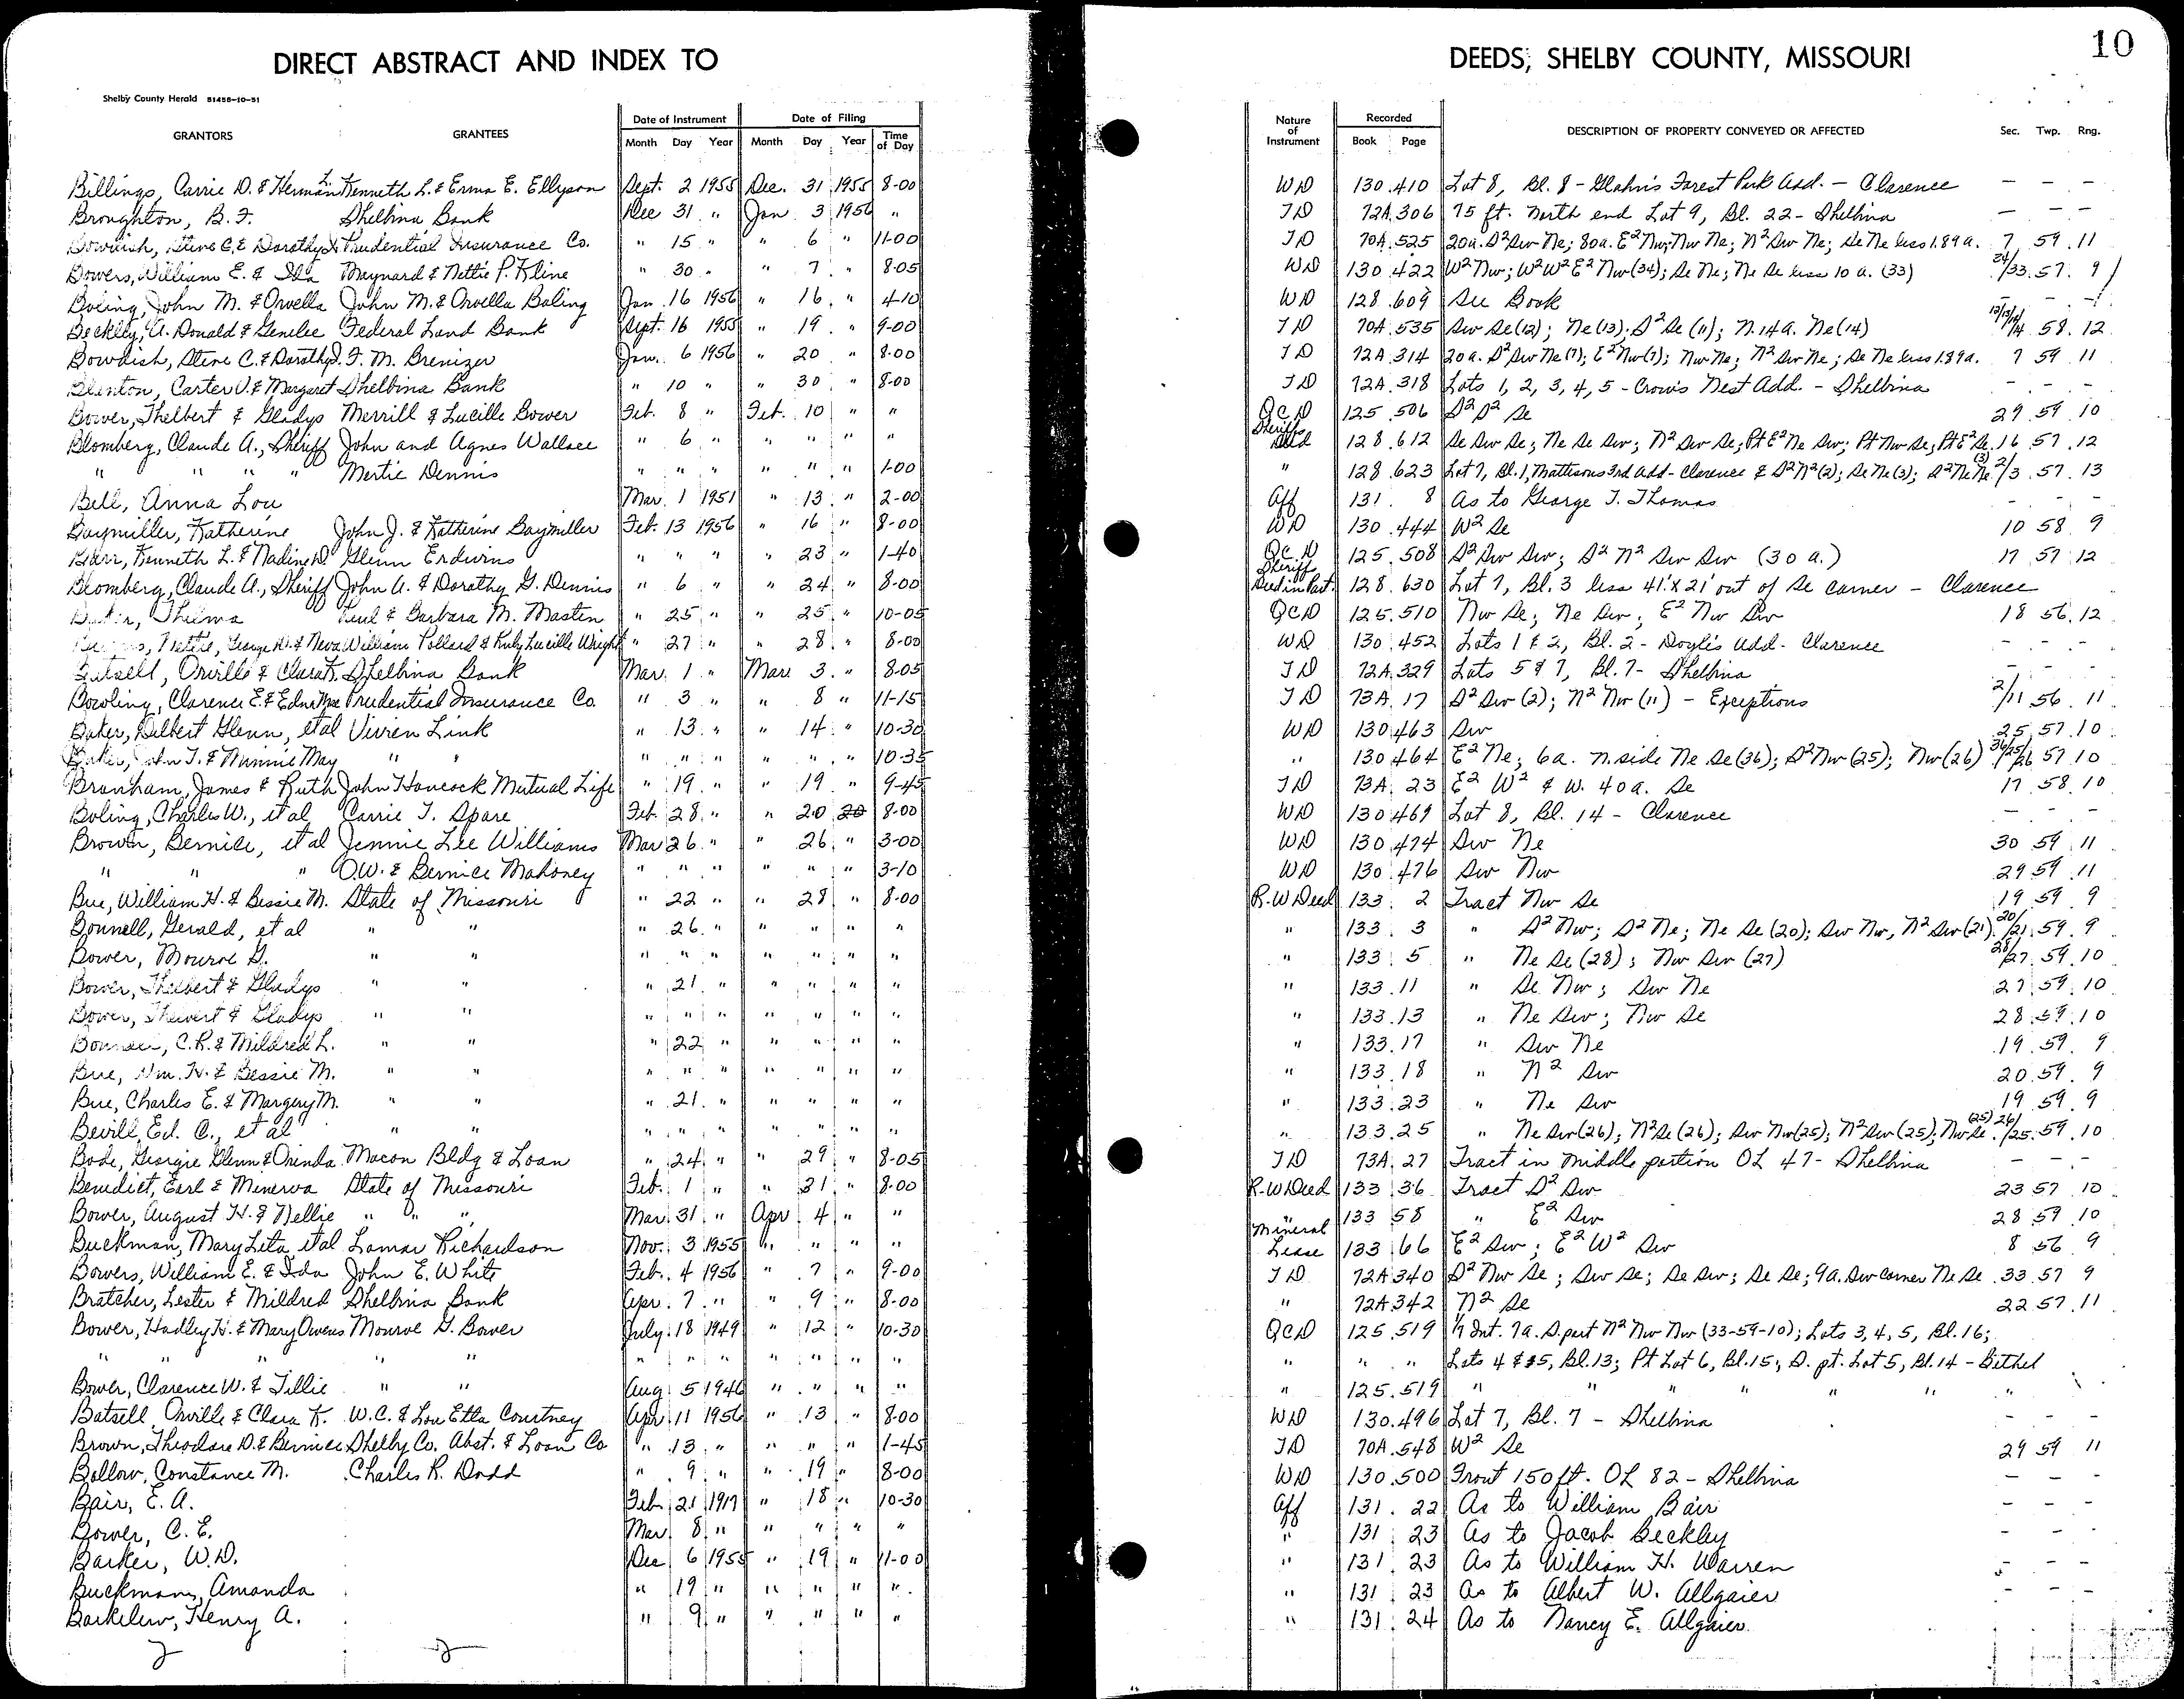 DIRECT ABSTRACT AND INDEX TO DEEDS, SHELBY COUNTY, MISSOURI 10
Shelby County Herald 51455-10-51
GRANTORS GRANTEES Date of Instrument Month Day Year Date of Filing Month Day Year Time of Day Nature of Instrument Recorded Book Page DESCRIPTION OF PROPERTY CONVEYED OR AFFECTED Sec. Twp. Rng.
Billings, Carrie D. & Herman L. Kenneth L. & Erma E. Ellyson Sept. 2 1955 Dec. 31 1955 8-00 WD 130 410 Lot 8, Bl. 8 - Glahn's Forest Park Add. - Clarence - - -
Broughton, B. F. Shelbina Bank Dec 31 " Jan 3 1956 " TD 72A 306 75 ft. North end Lot 9, Bl. 22 - Shelbina - - -
Bowdish, Stene C. & Dorothy J. Prudential Insurance Co. " 15 " " 6 " 11-00 TD 70A 525 20a. S² Sw Ne; 80a. E² Nw; Nw Ne; N² Sw Ne; Se Ne less 1.89a. 7 59 11
Bowers, William E. & Ida Maynard & Nettie P. Kline " 30 " " 7 " 8-05 WD 130 422 W² Nw; W² W² E² Nw (34); Se Ne; Ne Se less 10 a. (33) 34/33 57 9
Boling, John M. & Orvella John M. & Orvella Boling Jan 16 1956 " 16 " 4-10 WD 128 609 See Book - - -
Beckley, A. Donald & Genilee Federal Land Bank Sept. 16 1955 " 19 " 9-00 TD 70A 535 Sw Se (12); Ne (13); S² Se (11); N. 14a. Ne (14) 12/13/11/14 58 12
Bowdish, Stene C. & Dorothy J. F. M. Brenizer Jan. 6 1956 " 20 " 8-00 TD 72A 314 20a. S² Sw Ne (7); E² Nw (7); Nw Ne; N² Sw Ne; Se Ne less 1.89a. 7 59 11
Blanton, Carter V. & Margaret Shelbina Bank " 10 " " 30 " 8-00 TD 72A 318 Lots 1, 2, 3, 4, 5 - Crow's Nest Add. - Shelbina - - -
Bower, Thelbert & Gladys Merrill & Lucille Bower Feb. 8 " Feb. 10 " " QCD 125 506 S² S² Se 29 59 10
Blomberg, Claude A., Sheriff John and Agnes Wallace " 6 " " " " " Sheriff's Deed 128 612 Se Sw Se; Ne Se Sw; N² Sw Se; Pt E² Ne Sw; Pt Nw Se; Pt E² Se 16 57 12
" " " " Mertie Dennis " " " " " " 1-00 " 128 623 Lot 7, Bl. 1, Mattisons 3rd Add - Clarence & S² N² (2); Se Ne (3); S² Ne Ne (3) 2/3 57 13
Bell, Anna Lou Mar. 1 1951 " 13 " 2-00 Aff 131 8 As to George T. Thomas - - -
Baymiller, Katherine John J. & Katherine Baymiller Feb. 13 1956 " 16 " 8-00 WD 130 444 W² Se 10 58 9
Barr, Kenneth L. & Nadine D. Glenn Erdwins " " " " 23 " 1-40 QCD 125 508 S² Sw Sw; S² N² Sw Sw (30 a.) 17 57 12
Blomberg, Claude A., Sheriff John A. & Dorothy G. Dennis " 6 " " 24 " 8-00 Sheriff Deed in Part. 128 630 Lot 7, Bl. 3 less 41' X 21' out of Se corner - Clarence
Thelma Paul & Barbara M. Masten " 25 " " 25 " 10-05 QCD 125 510 Nw Se; Ne Sw; E² Nw Sw 18 56 12
Nettie, George W. & Neva William Pollard & Ruby Lucille Wright " 27 " " 28 " 8-00 WD 130 452 Lots 1 & 2, Bl. 2 - Doyle's Add - Clarence - - -
Batsell, Orville & Clara K. Shelbina Bank Mar. 1 " Mar. 3 " 8-05 TD 72A 329 Lots 5 & 7, Bl. 7 - Shelbina - - -
Bowling, Clarence E. & Edna Mae Prudential Insurance Co. " 3 " " 8 " 11-15 TD 73A 17 S² Sw (2); N² Nw (11) - Exceptions 2/11 56 11
Baker, Delbert Glenn, et al Vivien Link " 13 " " 14 " 10-30 WD 130 463 Sw 25 57 10
Baker, John T. & Minnie May " " " " " " " " 10-35 " 130 464 E² Ne; 6a. N. side Ne Se (36); S² Nw (25); Nw (26) 36/25/26 57 10
Branham, James & Ruth John Hancock Mutual Life " 19 " " 19 " 9-45 TD 73A 23 E² W² & W. 40a. Se 17 58 10
Boling, Charles W., et al Carrie T. Spare Feb. 28 " " 20 20 8-00 WD 130 469 Lot 8, Bl. 14 - Clarence - - -
Brown, Bernice, et al Jennie Lee Williams Mar 26 " " 26 " 3-00 WD 130 474 Sw Ne 30 59 11
" " " O.W. & Bernice Mahoney " " " " " " 3-10 WD 130 476 Sw Nw 29 59 11
Bue, William H. & Bessie M. State of Missouri " 22 " " 28 " 8-00 R.W Deed 133 2 Tract Nw Se 19 59 9
Bonnell, Gerald, et al " " " 26 " " " " " " 133 3 " S² Nw; S² Ne; Ne Se (20); Sw Nw, N² Sw (21) 20/21 59 9
Bower, Monroe G. " " " " " " " " " " 133 5 " Ne Se (28); Nw Sw (27) 28/27 59 10
Bower, Thelbert & Gladys " " " 21 " " " " " " 133 11 " Se Nw; Sw Ne 27 59 10
Bower, Thelbert & Gladys " " " " " " " " " " 133 13 " Ne Sw; Nw Se 28 59 10
C.R. & Mildred L. " " " 22 " " " " " " 133 17 " Sw Ne 19 59 9
Bue, Wm. H. & Bessie M. " " " " " " " " " " 133 18 " N² Sw 20 59 9
Bue, Charles E. & Margery M. " " " 21 " " " " " " 133 23 " Ne Sw 19 59 9
Bevill, Ed. C., et al " " " " " " " " " " 133 25 " Ne Sw (26); N² Se (26); Sw Nw (25); N² Sw (25); Nw Se (25) 26/25 59 10
Bode, Georgie Glenn & Orinda Macon Bldg & Loan " 24 " " 29 " 8-05 TD 73A 27 Tract in middle portion OL 47 - Shelbina - - -
Benedict, Earl & Minerva State of Missouri Feb. 1 " " 31 " 8-00 R.W Deed 133 36 Tract S² Sw 23 57 10
Bower, August H. & Nellie " " " Mar 31 " Apr 4 " " " 133 58 " E² Sw 28 59 10
Buckman, Mary Leta, et al Lamar Richardson Nov. 3 1955 " " " " Mineral Lease 133 66 E² Sw; E² W² Sw 8 56 9
Bowers, William E. & Ida John E. White Feb. 4 1956 " 7 " 9-00 TD 72A 340 S² Nw Se; Sw Se; Se Sw; Se Se; 9a. Sw corner Ne Se 33 57 9
Bratcher, Lester & Mildred Shelbina Bank Apr. 7 " " 9 " 8-00 " 72A 342 N² Se 22 57 11
Bower, Hadley H. & Mary Owens Monroe G. Bower July 18 1949 " 12 " 10-30 QCD 125 519 1/7 Int. 7a. S. part N² Nw Nw (33-59-10); Lots 3, 4, 5, Bl. 16;
" " " " " " " " " " " " " " " Lots 4 & 5, Bl. 13; Pt Lot 6, Bl. 15; S. pt. Lot 5, Bl. 14 - Bethel
Bower, Clarence W. & Tillie " " Aug 5 1946 " " " " " 125 519 " " " " " " "
Batsell, Orville & Clara K. W.C. & Lou Etta Courtney Apr 11 1956 " 13 " 8-00 WD 130 496 Lot 7, Bl. 7 - Shelbina - - -
Brown, Theodore D. & Bernice Shelby Co. Abst. & Loan Co " 13 " " " " 1-45 TD 70A 548 W² Se 29 59 11
Ballow, Constance M. Charles R. Dodd " 9 " " 19 " 8-00 WD 130 500 Front 150 ft. OL 82 - Shelbina - - -
Bair, E. A. Feb 21 1917 " 18 " 10-30 Aff 131 22 As to William Bair - - -
Bower, C. E. Mar 8 " " " " " " 131 23 As to Jacob Beckley - - -
Barker, W.D. Dec 6 1955 " 19 " 11-00 " 131 23 As to William H. Warren - -
Buckman, Amanda " 19 " " " " " " 131 23 As to Albert W. Allgaier - - -
Barkelew, Henry A. " 9 " " " " " " 131 24 As to Nancy E. Allgaier